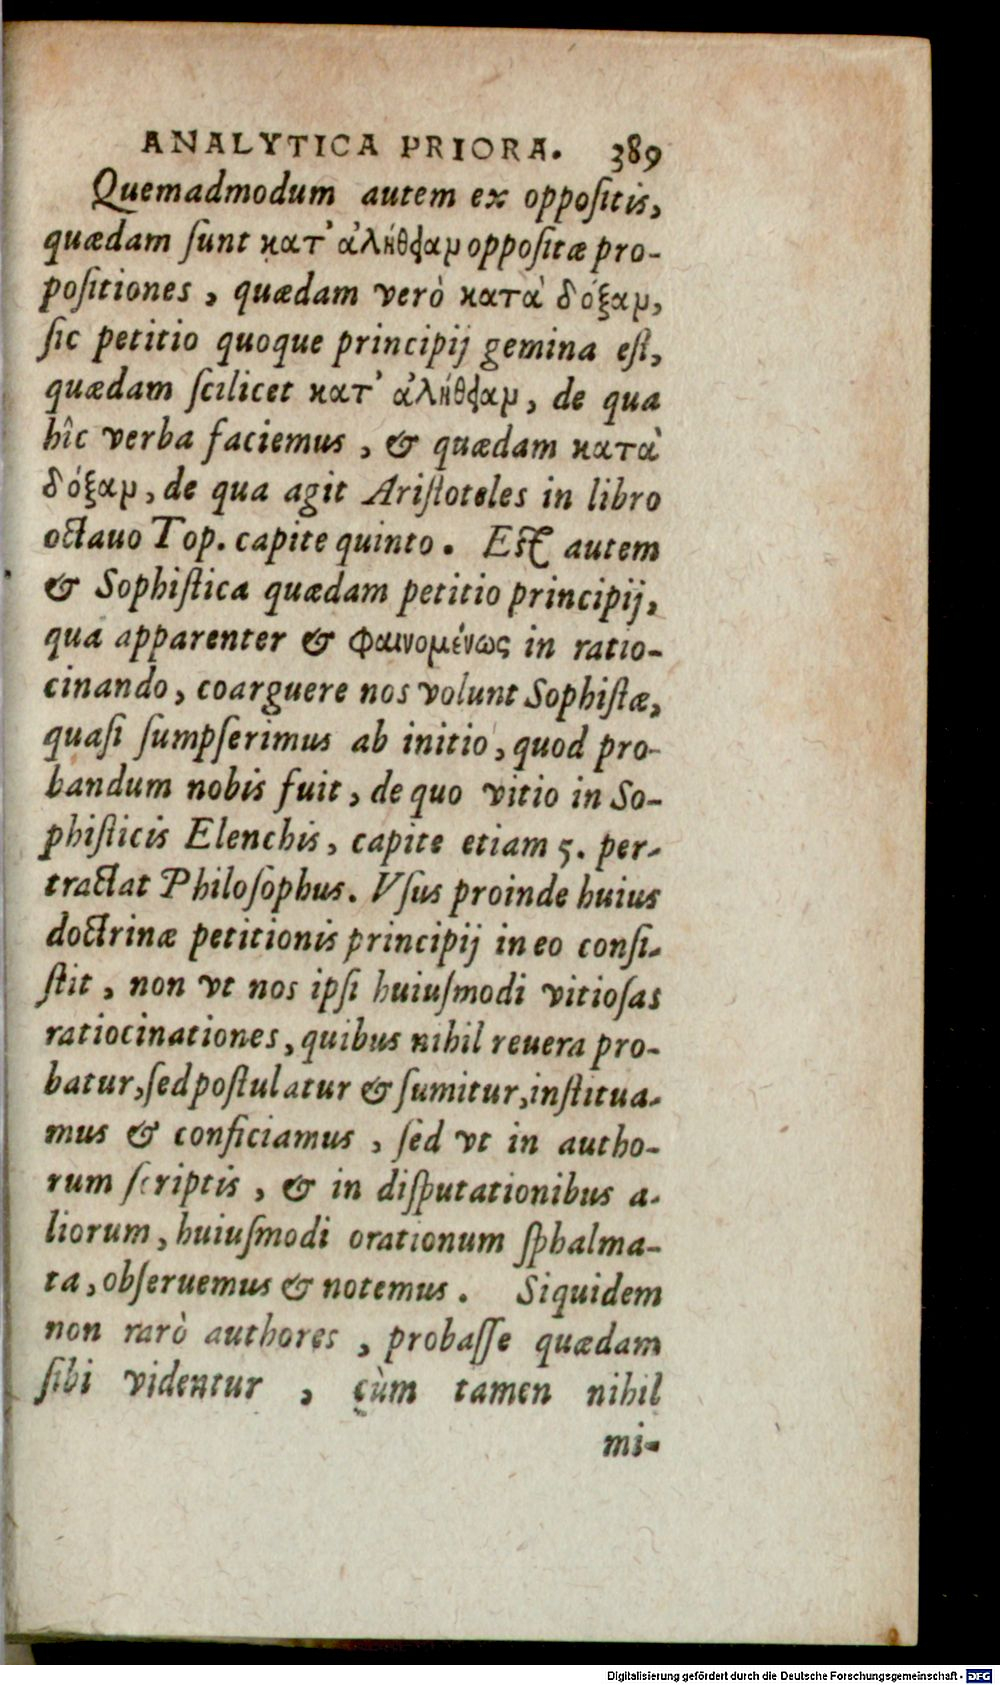 ANALYTICA PRIORA. 389
Quemadmodum autem ex oppoſitis,
quædam ſunt κατ' ἀλήθειαμ oppoſitæ pro-
poſitiones, quædam verò κατὰ δόξαμ,
ſic petitio quoque principij gemina eſt,
quædam ſcilicet κατ' ἀλήθειαμ, de qua
hîc verba faciemus, & quædam κατὰ
δόξαμ, de qua agit Ariſtoteles in libro
octauo Top. capite quinto. Eſt autem
& Sophiſtica quædam petitio principij,
qua apparenter & φαινομένως in ratio-
cinando, coarguere nos volunt Sophiſtæ,
quaſi ſumpſerimus ab initio, quod pro-
bandum nobis fuit, de quo vitio in So-
phiſticis Elenchis, capite etiam 5. per-
tractat Philoſophus. Vſus proinde huius
doctrinæ petitionis principij in eo conſi-
ſtit, non vt nos ipſi huiuſmodi vitioſas
ratiocinationes, quibus nihil reuera pro-
batur, ſed poſtulatur & ſumitur, inſtitua-
mus & conficiamus, ſed vt in autho-
rum ſcriptis, & in diſputationibus a-
liorum, huiuſmodi orationum ſphalma-
ta, obſeruemus & notemus. Siquidem
non rarò authores, probaſſe quædam
ſibi videntur, cùm tamen nihil
mi-
Digitalisierung gefördert durch die Deutsche Forschungsgemeinschaft - DFG